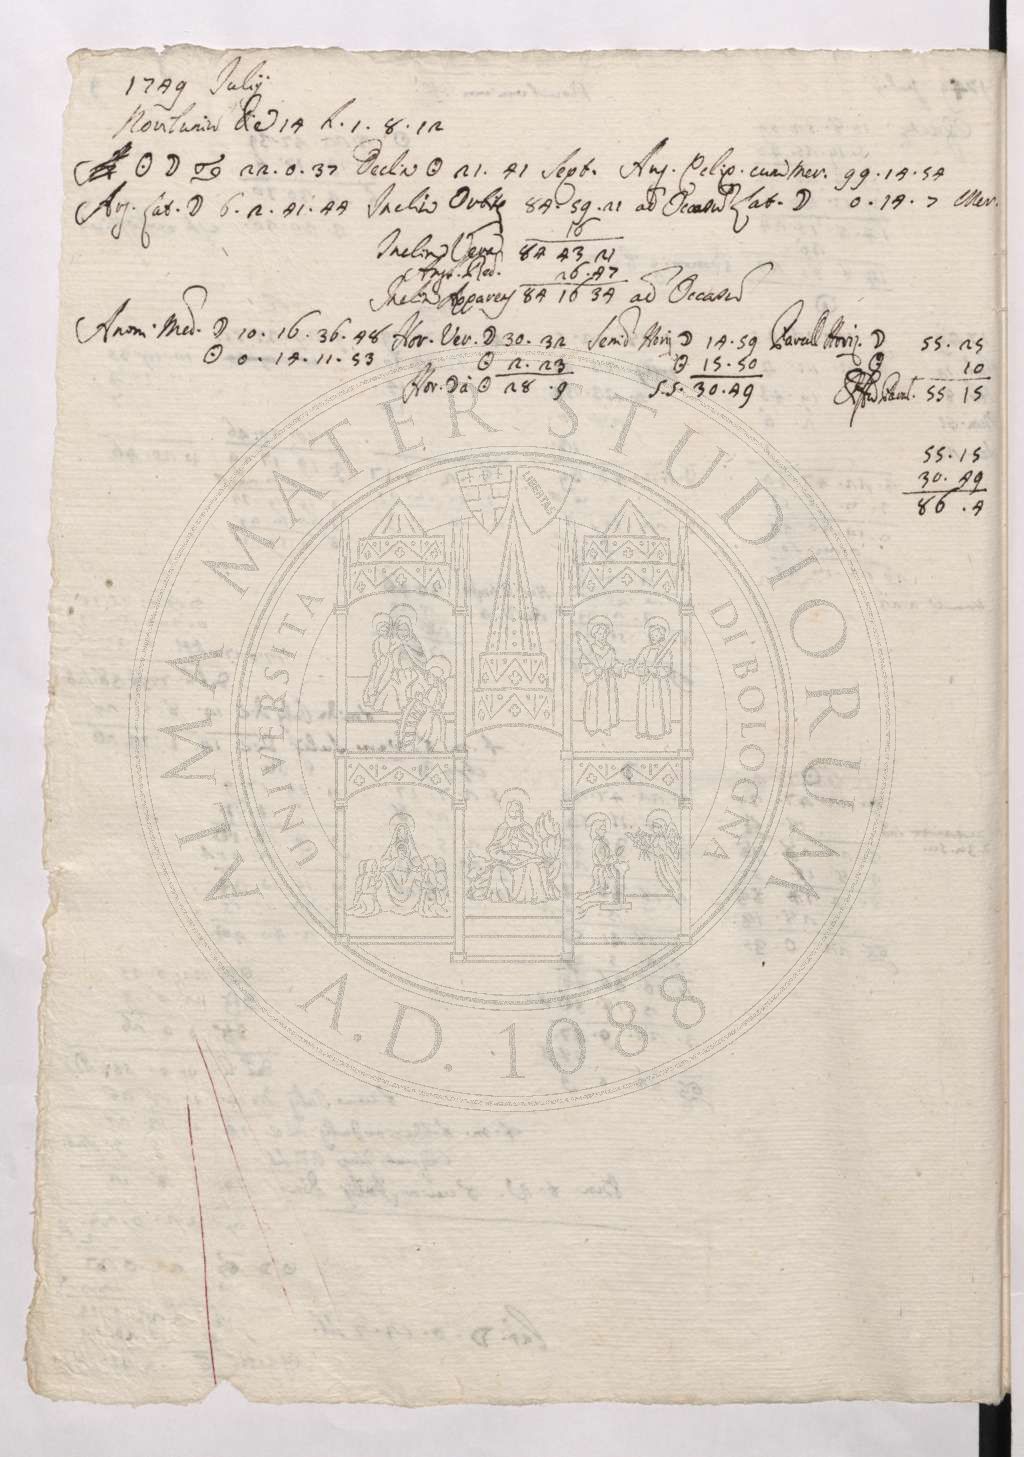 1749 Julij
Novilunium Die 14 h. 1. 8. 12
☉ ☽ ♋ 22. 0. 37 Declin ☉ 21. 41 Sept. Ang. Eclip. cum Mer. 99. 14. 54
Arg. Lat. ☽ 6. 2. 41. 44 Inclin Orbitę 84. 59. 21 ad Occasū Lat. ☽ 0. 14. 7 Mer.
16
Inclin Vera 84 43 21
Ang. Red. 26. 47
Inclin Apparens 84 16 34 ad Occasū
Anom. Med. ☽ 10. 16. 36. 48 Hor. Ver. ☽ 30. 32 Semid Horiz ☽ 14. 59 Parall Horiz. ☽ 55. 25
☉ 0. 14. 11. 53 ☉ 2. 23 ☉ 15. 50 ☉ 10
Hor. ☽ à ☉ 28. 9 S.S. 30. 49 55 15
55. 15
30. 49
86. 4
ALMA MATER STUDIORUM
UNIVERSITA DI BOLOGNA
LIBERTAS
A.D. 1088